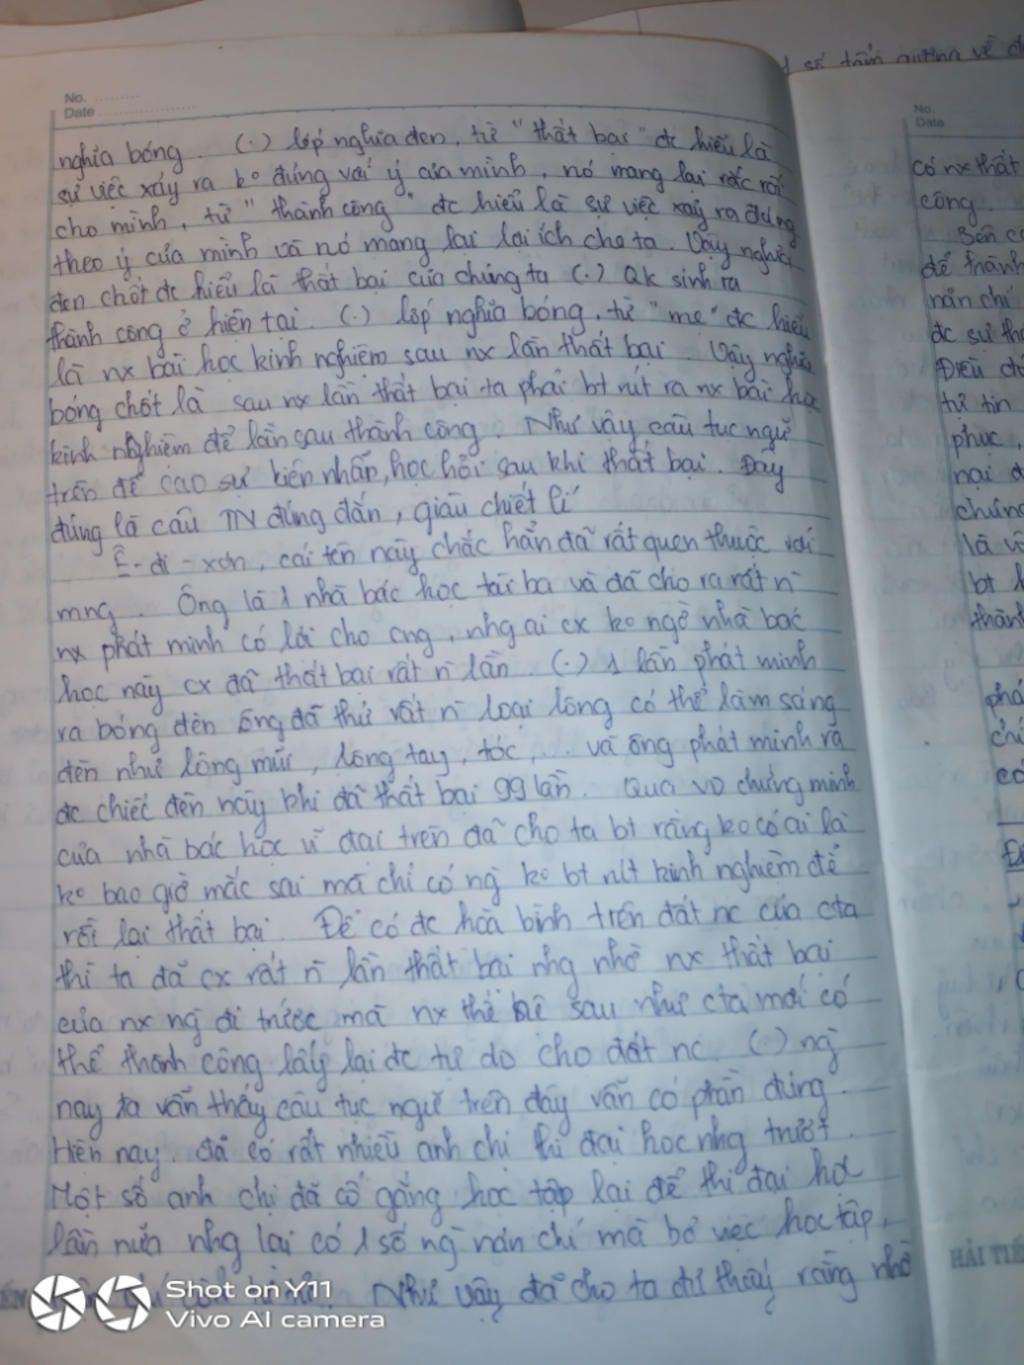 No.
Date
nghĩa bóng. (.) lớp nghĩa đen, từ "thất bại" đc hiểu là
sự việc xảy ra ko đúng với ý của mình, nó mang lại rắc rối
cho mình, từ "thành công" đc hiểu là sự việc xảy ra đúng
theo ý của mình và nó mang lại lợi ích cho ta. Vậy nghĩa
đen chốt đc hiểu là thất bại của chúng ta (.) QK sinh ra
thành công ở hiện tại. (.) lớp nghĩa bóng, từ "mẹ" đc hiểu
là nx bài học kinh nghiệm sau nx lần thất bại. Vậy nghĩa
bóng chốt là sau nx lần thất bại ta phải bt rút ra nx bài học
kinh nghiệm để lần sau thành công. Như vậy câu tục ngữ
trên đề cao sự kiên nhẫn, học hỏi sau khi thất bại. Đây
đúng là câu TN đúng đắn, giàu chiết lí
Ê-đi-xơn, cái tên này chắc hẳn đã rất quen thuộc với
mng. Ông là 1 nhà bác học tài ba và đã cho ra rất n
nx phát minh có lời cho cng, nhg ai cx ko ngờ nhà bác
học này cx đã thất bại rất n lần. (.) 1 lần phát minh
ra bóng đèn ông đã thử rất n loại lông có thể làm sáng
đèn như lông mũi, lông tay, tóc,.. và ông phát minh ra
đc chiếc đèn này khi đã thất bại 99 lần. Qua VD chứng minh
của nhà bác học vĩ đại trên đã cho ta bt rằng ko có ai là
ko bao giờ mắc sai mà chỉ có ng ko bt rút kinh nghiệm để
rồi lại thất bại. Để có đc hoà bình trên đất nc của cta
thì ta đã cx rất n lần thất bại nhg nhờ nx thất bại
của nx ng đi trước mà nx thế hệ sau như cta mới có
thể thành công lấy lại đc tự do cho đất nc. (.) ng
nay ta vẫn thấy câu tục ngữ trên đây vẫn có phần đúng.
Hiện nay, đã có rất nhiều anh chị thi đại học nhg trượt.
Một số anh chị đã cố gắng học tập lại để thi đại học
lần nữa nhg lại có 1 số ng nản chí mà bỏ việc học tập,
Như vậy đã cho ta đc thấy rằng nhờ
số tấm gương về
No.
Date
có nx thất
công.
Bên cạ
để thành
nản chí
đc sự th
Điều ch
tự tin
phục,
nại
chúng
là
bt
thành
phá
chí
có
HẢI TIẾ
Shot on Y11
Vivo AI camera